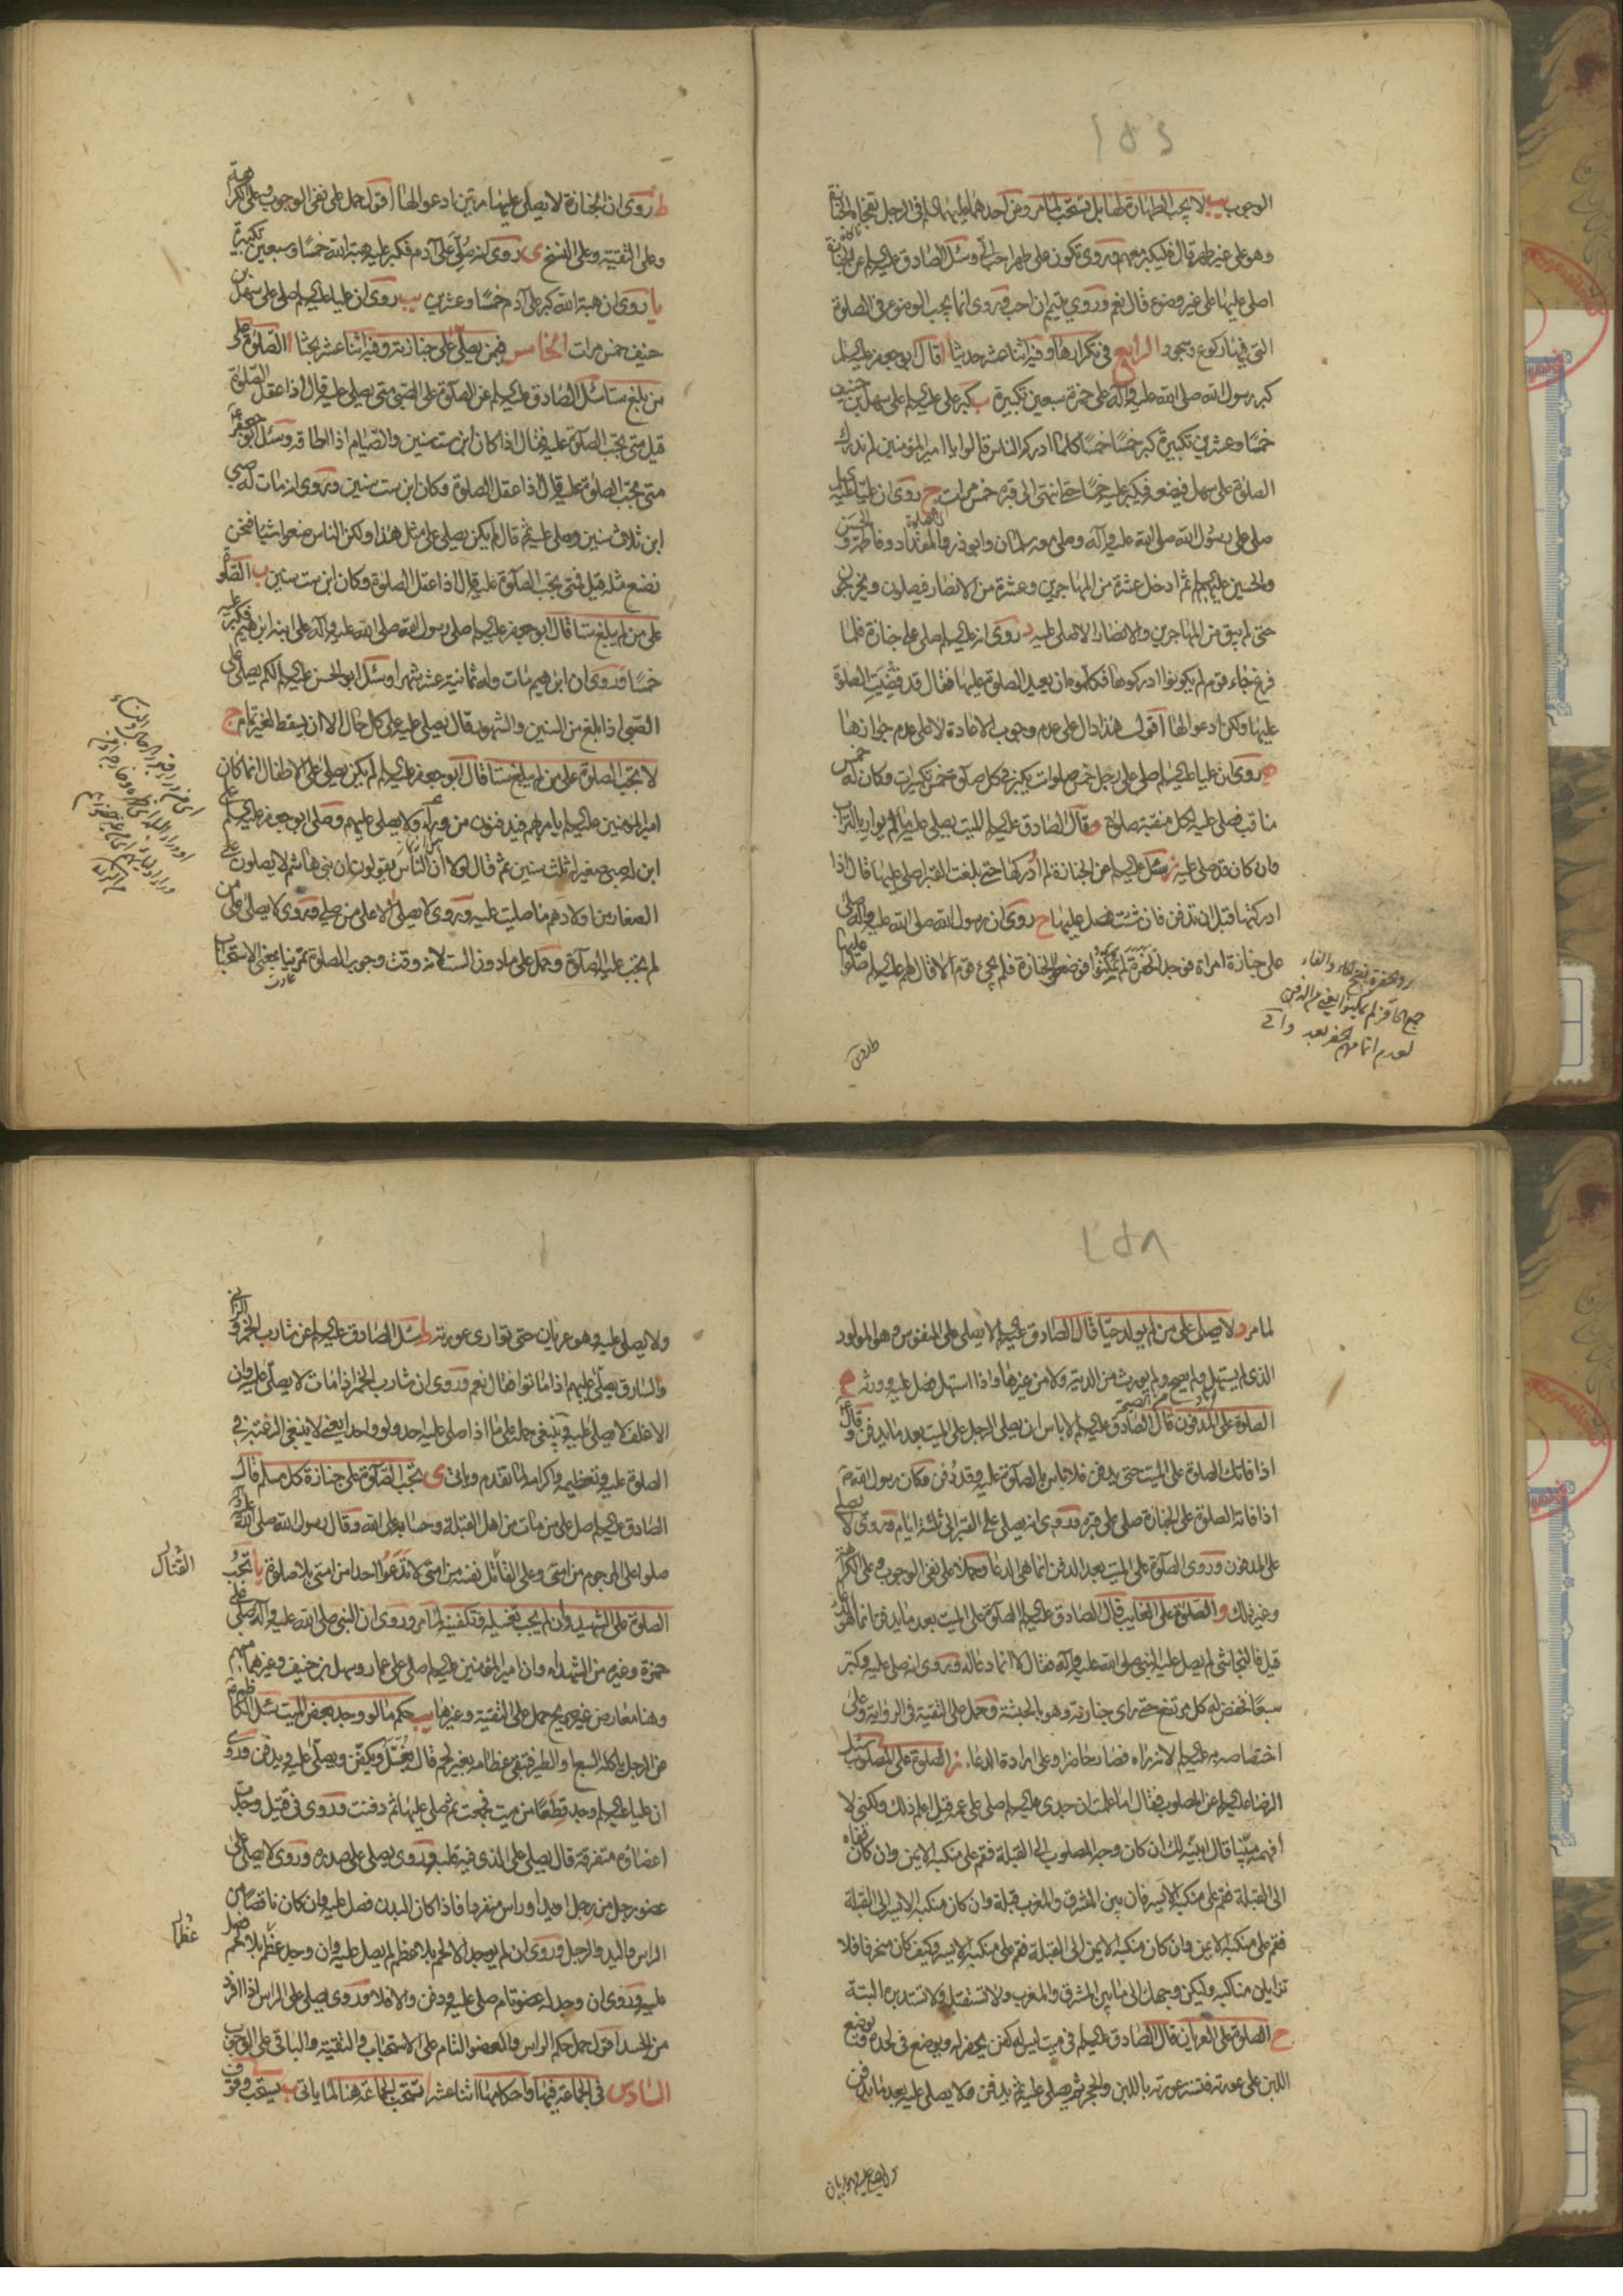 الوجوب يب لا يجب الطهارة لها بل يستحب لما مر وعن احدهما عليهما السلم في الرجل تفجاه الجنازة
وهو على غير طهر قال فليكبر معهم وروى تكون على طهر احب الى وسئل الصادق عليه السلم عن الجنازة
اصلى عليها على غير وضوء قال نعم وروى يتيمم ان احب وروى انما يجب الوضوء في الصلوة
التى فيها ركوع وسجود الرابع في تكرارها وفيه اثنا عشر حديثا ا قال ابو جعفر عليه السلم
كبر رسول الله صلى الله عليه وآله على حمزة سبعين تكبيرة ب كبر على عليه السلم على سهل بن حنيف
خمسا وعشرين تكبيرة كبر خمسا خمسا كلما ادركه الناس قالوا يا امير المؤمنين لم ندرك
الصلوة على سهل فيضعه فيكبر عليه خمسا حتى انتهى الى قبره خمس مرات ج روى ان عليا عليه السلم
صلى على رسول الله صلى الله عليه وآله وصلى معه سلمان وابو ذر والمقداد وفاطمة والحسن
والحسين عليهم السلم ثم ادخل عشرة من المهاجرين وعشرة من الانصار فيصلون ويخرجون
حتى لم يبق من المهاجرين والانصار الا صلى عليه د روى انه عليه السلم صلى على جنازة فلما
فرغ جاء قوم لم يكونوا ادركوها فكلموه ان يعيد الصلوة عليها فقال قد قضيت الصلوة
عليها ولكن ادعوا لها اقول هذا دال على عدم وجوب الاعادة لا على عدم جوازها
ه روى ان عليا عليه السلم صلى على رجل خمس صلوات يكبر في كل صلوة خمس تكبيرات وكان له خمس
مناقب فصلى عليه لكل منقبة صلوة و قال الصادق عليه السلم الميت يصلى عليه ما لم يوار بالتراب
وان كان قد صلى عليه ز سئل عليه السلم عن الجنازة لم ادركها حتى بلغت القبر اصلى عليها قال اذا
ادركتها قبل ان تدفن فان شئت فصل عليها ح روى ان رسول الله صلى الله عليه وآله صلى
على جنازة امراة فوجد الحفرة لم يمكنوا فوضعوا الجنازة فلم يجئ قوم الا قال لهم عليه السلم صلوا عليها
ط روى
ط روى ان الجنازة لا يصلى عليها مرتين ادعوا لها اقول حمل على نفى الوجوب وعلى الكراهة
وعلى التقية وعلى النسخ ى روى انه صلى على آدم فكبر عليه هبة الله خمسا وسبعين تكبيرة
يا روى ان هبة الله كبر على آدم خمسا وعشرين يب روى ان عليا عليه السلم صلى على سهل بن
حنيف خمس مرات الخامس فيمن يصلى على جنازته وفيه اثنا عشر بحثا ا الصلوة على
من بلغ ستا سئل الصادق عليه السلم عن الصلوة على الصبى متى يصلى عليه قال اذا عقل الصلوة
قيل متى تجب الصلوة عليه فقال اذا كان ابن ست سنين والصيام اذا اطاقه وسئل ابو جعفر عليه السلم
متى تجب الصلوة عليه قال اذا عقل الصلوة وكان ابن ست سنين وروى انه مات له صبى
ابن ثلاث سنين وصلى عليه ثم قال لم يكن يصلى على مثل هذا ولكن الناس صنعوا شيئا فنحن
نصنع مثله قيل فمتى تجب الصلوة عليه قال اذا عقل الصلوة وكان ابن ست سنين ب الصلوة
على من لم يبلغ ستا قال ابو جعفر عليه السلم صلى رسول الله صلى الله عليه وآله على ابنه ابرهيم فكبر عليه
خمسا وروى ان ابرهيم مات وله ثمانية عشر شهرا وسئل ابو الحسن عليه السلم لكم يصلى على
الصبى اذا بلغ من السنين والشهور قال يصلى عليه على كل حال الا ان يسقط لغير تمام ج
لا تجب الصلوة على من لم يبلغ ستا قال ابو جعفر عليه السلم لم يكن يصلى على الاطفال انما كان
امير المؤمنين عليه السلم يامر بهم فيدفنون من وراء ولا يصلى عليهم وصلى ابو جعفر عليه السلم على
ابن له صبى صغير له ثلث سنين ثم قال لولا ان الناس يقولون ان بنى هاشم لا يصلون على
الصغار من اولادهم ما صليت عليه وروى لا يصلى الا على من صلى وروى لا يصلى على من
لم تجب عليه الصلوة وحمل على ما دون الست لانه وقت وجوب الصلوة تمرينا بمعنى الاستحباب
لما مر د لا يصلى على من لم يولد حيا قال الصادق عليه السلم لا يصلى على المنفوس وهو المولود
الذى لم يستهل ولم يصح ولم يورث من الدية ولا من غيرها واذا استهل فصل عليه وورثه ه
الصلوة على المدفون قال الصادق عليه السلم لا باس ان يصلى الرجل على الميت بعد ما يدفن وقال
اذا فاتك الصلوة على الميت حتى يدفن فلا باس بالصلوة عليه وقد دفن وكان رسول الله ص
اذا فاته الصلوة على الجنازة صلى على قبره وروى انه يصلى على القبر الى ثلثة ايام وروى لا يصلى
على المدفون وروى الصلوة على الميت بعد الدفن انما هى الدعا وحملا على نفى الوجوب وعلى الكراهة
وغير ذلك و الصلوة على الغايب قال الصادق عليه السلم الصلوة على الميت بعد ما يدفن انما هو الدعا
قيل فالنجاشى لم يصل عليه النبى صلى الله عليه وآله فقال لا انما دعا له وروى انه صلى عليه وكبر
سبعا فخفض له كل مرتفع حتى راى جنازته وهو بالحبشة وحمل على التقية في الرواية وعلى
اختصاصه به عليه السلم لانه رآه فصار حاضرا وعلى ارادة الدعاء ز الصلوة على المصلوب سئل
الرضا عليه السلم عن المصلوب فقال اما علمت ان جدى عليه السلم صلى على عمه قيل اعلم ذلك ولكنى لا
افهمه مبينا قال ابينه لك ان كان وجه المصلوب الى القبلة فقم على منكبه الايمن وان كان قفاه
الى القبلة فقم على منكبه الايسر فان بين المشرق والمغرب قبلة وان كان منكبه الايسر الى القبلة
فقم على منكبه الايمن وان كان منكبه الايمن الى القبلة فقم على منكبه الايسر وكيف كان منحرفا فلا
تزايلن مناكبه وليكن وجهك الى ما بين المشرق والمغرب ولا تستقبله ولا تستدبره البتة
ح الصلوة على العريان قال الصادق عليه السلم في ميت ليس له كفن يحفر له ويوضع في لحده ويوضع
اللبن على عورته فتستر عورته باللبن والحجر ثم يصلى عليه ثم يدفن ولا يصلى عليه بعد ما يدفن
ولا يصلى عليه وهو عريان
ولا يصلى عليه وهو عريان حتى توارى عورته ط سئل الصادق عليه السلم عن شارب الخمر والزانى
والسارق يصلى عليهم اذا ماتوا فقال نعم وروى ان شارب الخمر اذا مات لا يصلى عليه وان
الاغلف لا يصلى عليه وينبغى حمله على ما اذا صلى عليه احد ولو واحد ايعنى لا ينبغى الرغبة في
الصلوة عليه وتعظيمه واكرامه لما تقدم وياتى ى تجب الصلوة على جنازة كل مسلم قال
الصادق عليه السلم صل على من مات من اهل القبلة وحسابه على الله وقال رسول الله صلى الله عليه وآله
صلوا على المرجوم من امتى وعلى القاتل نفسه من امتى لا تدعوا احدا من امتى بلا صلوة يا تجب
القتال
الصلوة على الشهيد وان لم يجب تغسيله وتكفينه لما مر وروى ان النبى صلى الله عليه وآله صلى على
حمزة وغيره من الشهداء وان امير المؤمنين عليه السلم صلى على عمار وسهل بن حنيف وغيرهما منهم
وهنا معارض غير صريح حمل على التقية وغيرها يب حكم ما لو وجد بعض الميت سئل الكاظم ع
عن الرجل ياكله السبع او الطير فتبقى عظامه بغير لحم قال يغسل ويكفن ويصلى عليه ويدفن وروى
ان عليا عليه السلم وجد قطعا من ميت فجمعت ثم صلى عليها ثم دفنت وروى في قتيل وجدت
اعضاؤه متفرقة قال يصلى على الذى فيه قلبه وروى يصلى على صدره وروى لا يصلى على
عضو رجل من رجل او يد او راس منفردا فاذا كان البدن فصل عليه وان كان ناقصا من
الراس واليد والرجل وروى ان لم يوجد الا لحم بلا عظم لم يصل عليه وان وجد عظم بلا لحم صل
عظما
عليه وروى ان وجد له عضو تام صلى عليه ودفن والا فلا وروى يصلى على الراس اذا افرد
من الجسد اقول حمل حكم الراس والعضو التام على الاستحباب والتقية والباقى على الوجوب
السادس في الجماعة فيها واحكامها اثنا عشر ا تستحب الجماعة هنا لما ياتى ب يستحب وقوف